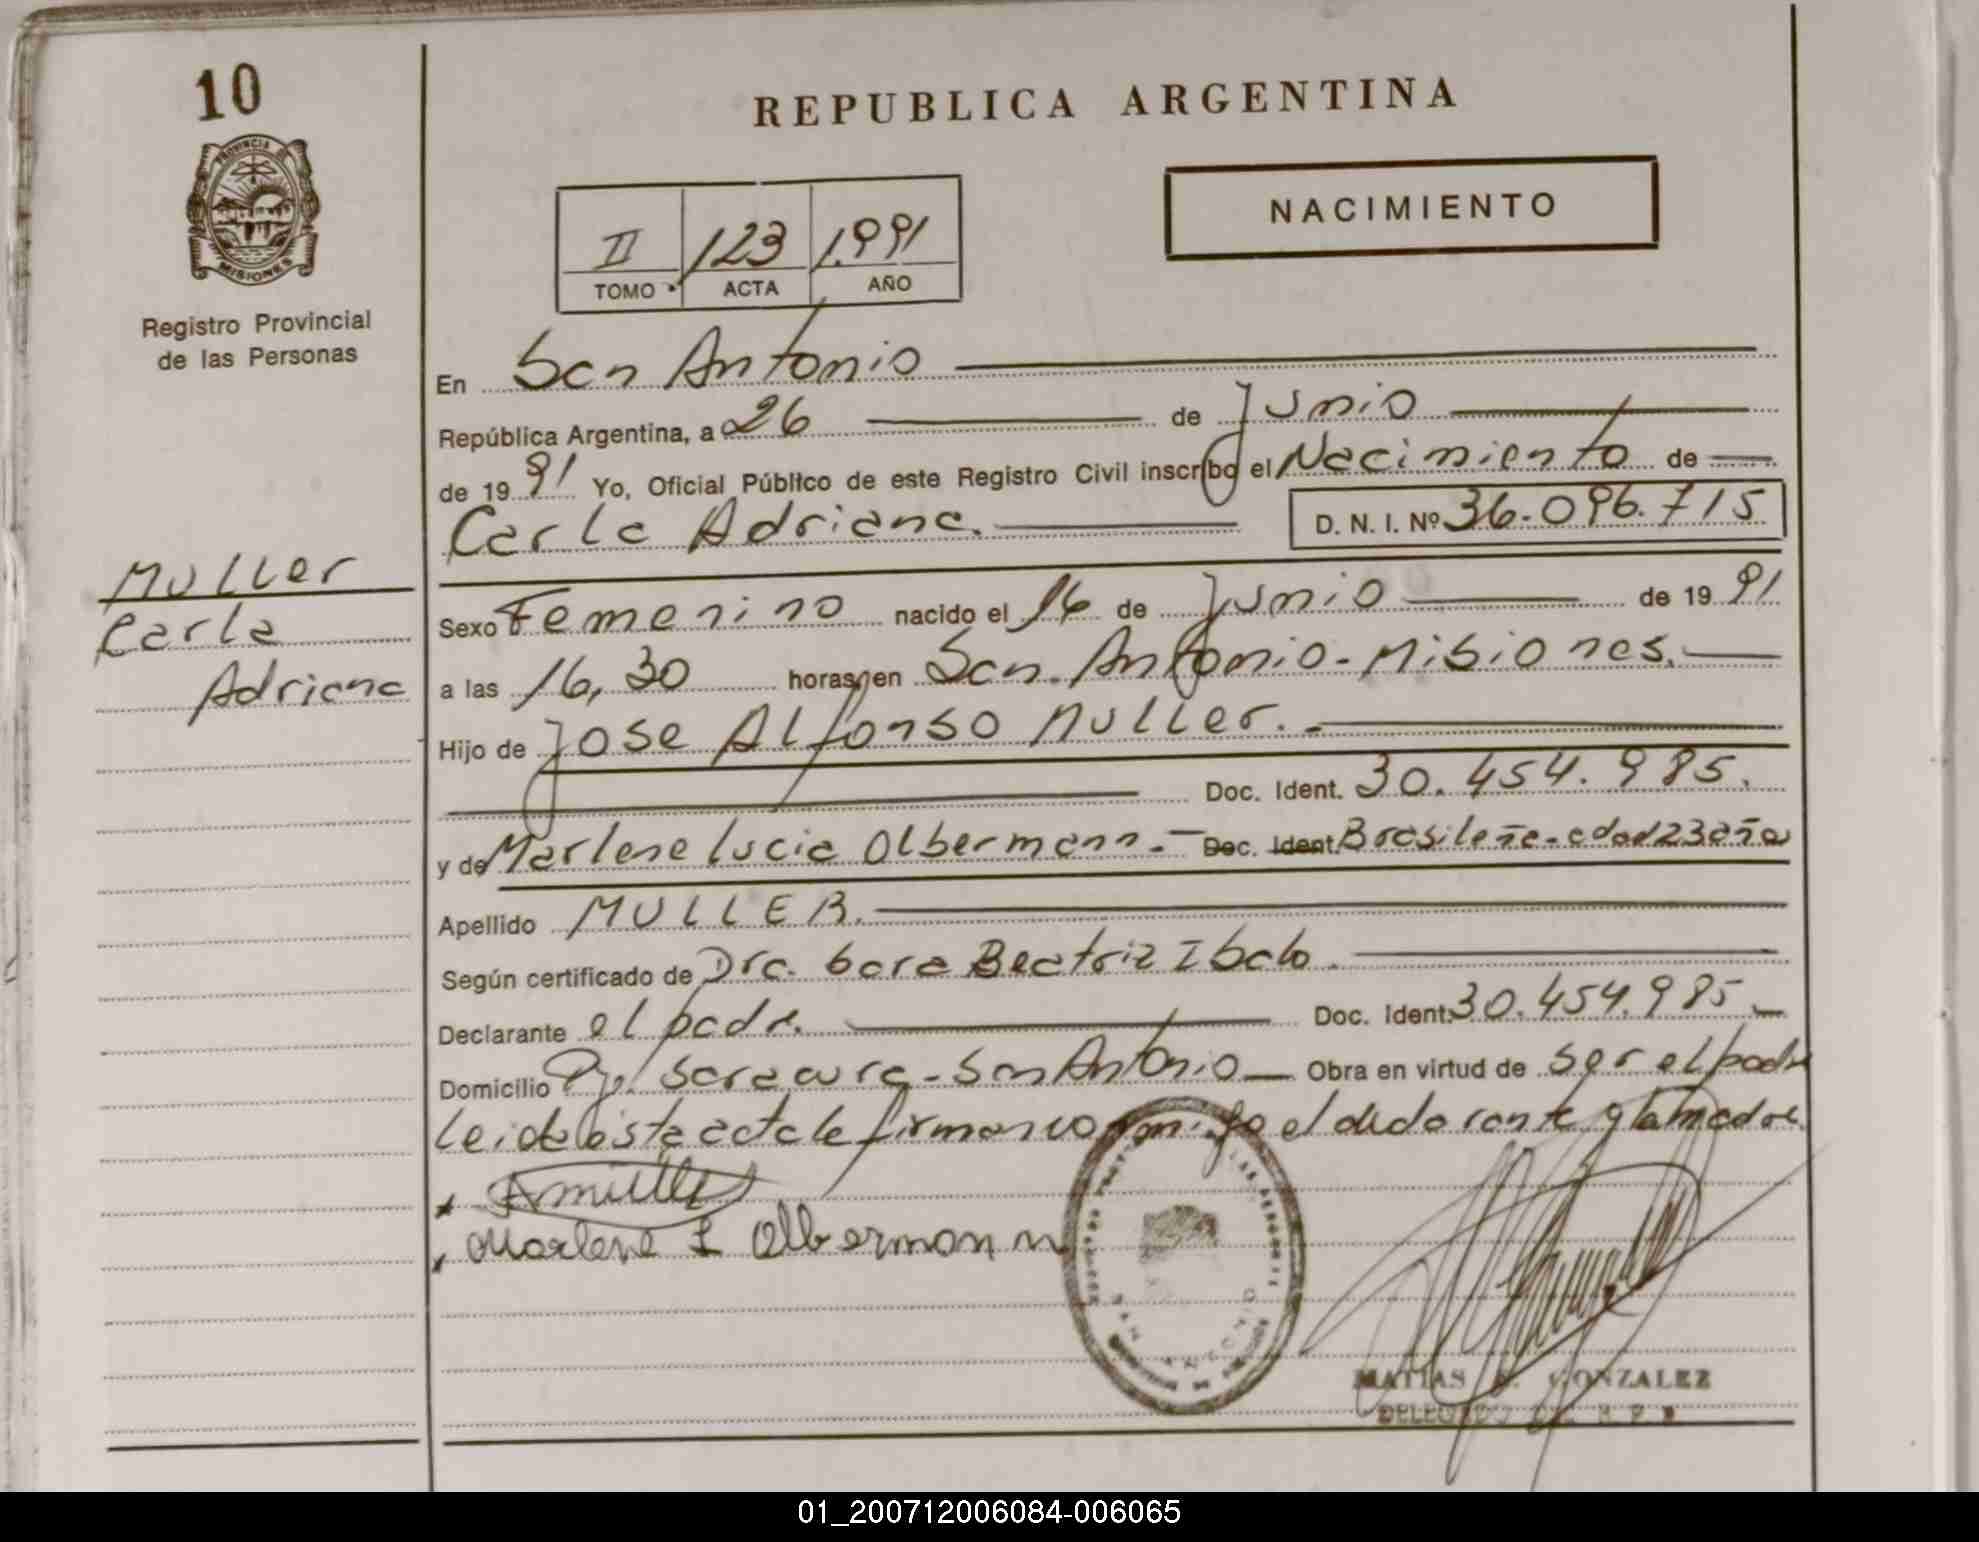 10
PROVINCIA DE
MISIONES
Registro Provincial
de las Personas
Muller
Carla
Adriana
REPUBLICA ARGENTINA
NACIMIENTO
II 123 1.991
TOMO ACTA AÑO
En San Antonio
República Argentina, a 26 de Junio
de 1991 Yo, Oficial Público de este Registro Civil inscribo el Nacimiento de
Carla Adriana. D. N. I. Nº 36.096.715
Sexo Femenino nacido el 16 de Junio de 1991
a las 16,30 horas, en San Antonio - Misiones.
Hijo de Jose Alfonso Muller.
Doc. Ident. 30.454.985.
y de Marlene Lucia Olbermann. - Doc. Ident. Brasileña - edad 23 años
Apellido MULLER.
Según certificado de Dra. Sara Beatriz Ibalo.
Declarante el padre. Doc. Ident. 30.454.985
Domicilio Pje. Saracura - San Antonio Obra en virtud de ser el padre
Leida esta acta le firman conmigo el declarante y la madre.
Marlene L Olbermann
MATIAS GONZALEZ
DELEGADO DEL R. P. P.
01_200712006084-006065